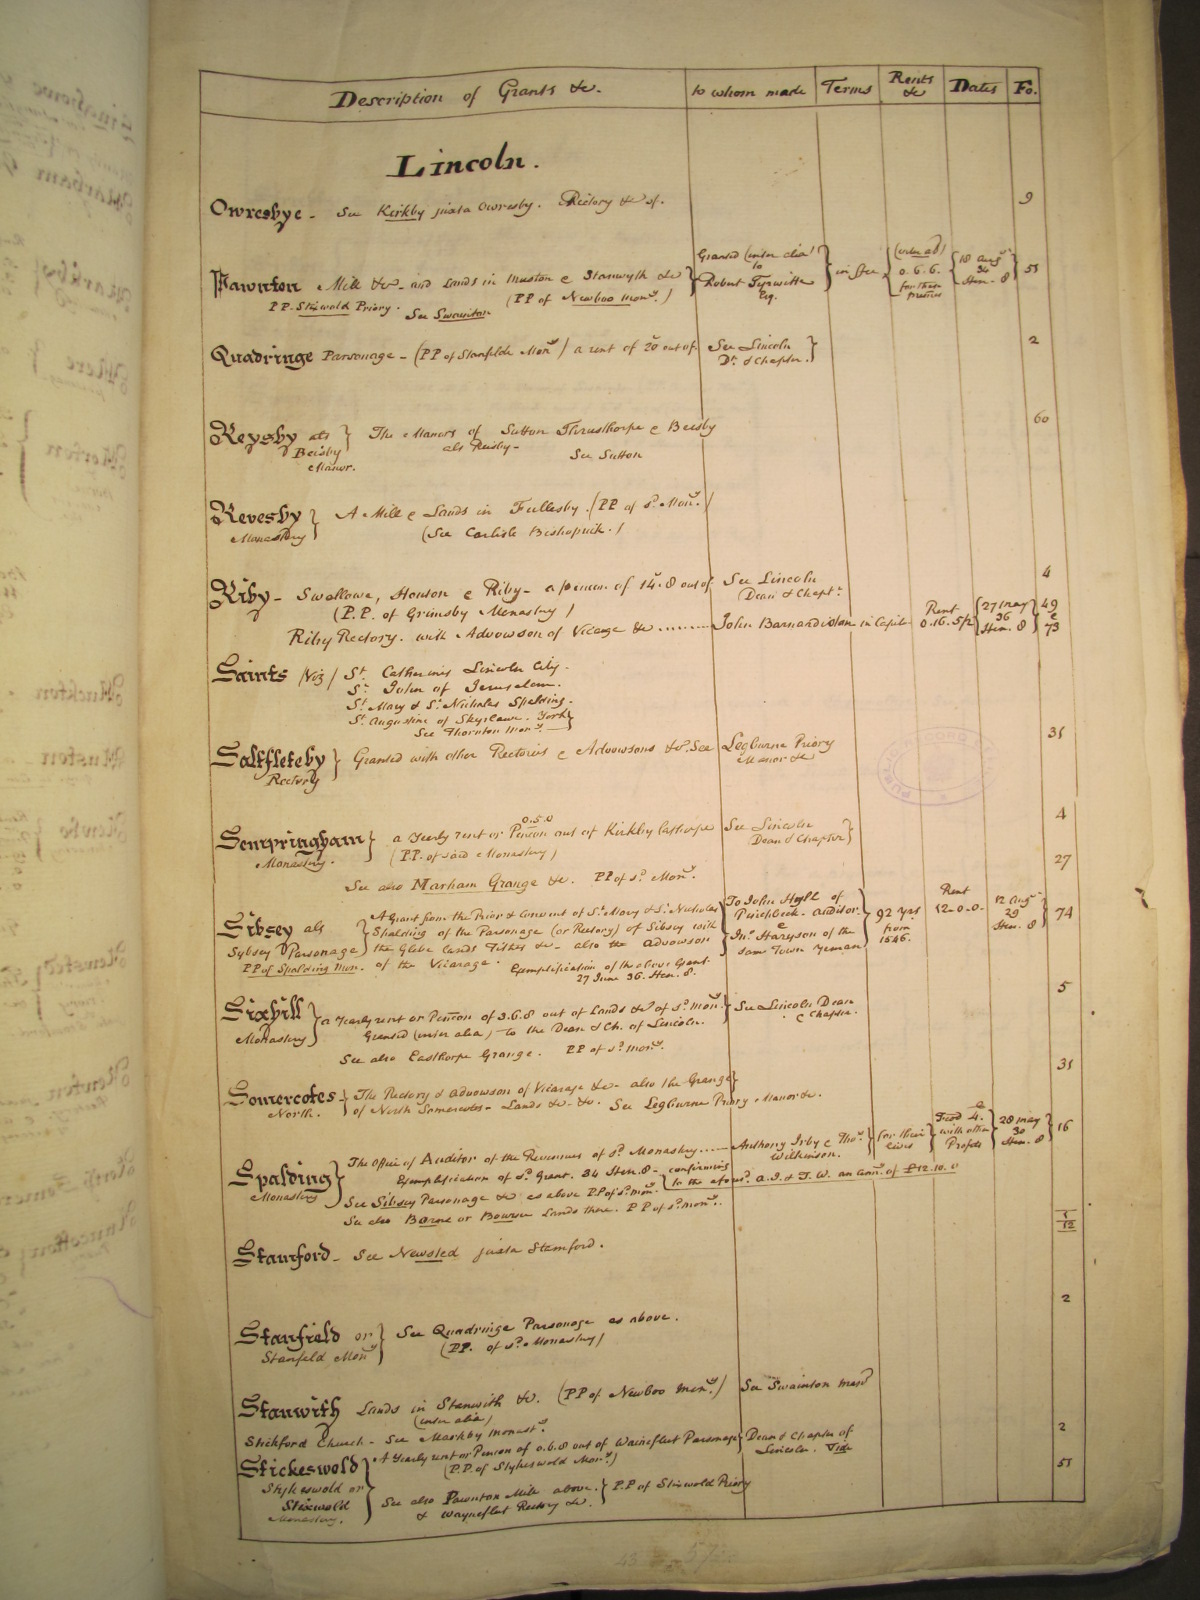 Description of Grants &c. to whom made Terms Rents &c Dates Fo.
Lincoln.
Owresbye - See Kirkby juxta Owresby. Rectory &c of. 9
Pawnton Mill &c and Lands in Muston & Stanwyth &c
P P. Stixwold Priory. See Swainton (PP of Newboo Mon.y)
Granted (inter alia)
to
Robert Tyrwitte
Esq.
in fee
(inter al)
0. 6. 6.
for these
premes
18 Aug
36
Hen. 8
51
Quadringe Parsonage - (PP of Stanfelde Mon.y) a rent of 20 out of See Lincoln
Dn. & Chapter.
2
Reysby als The Manors of Sutton Thrusthorpe & Beisby
Beisby als Reisby -
Manor. See Sutton
60
Revesby A Mill & Lands in Fullesby. (PP of sd. Mon.y)
Monastery (See Carlisle Bishoprick.)
Riby - Swallowe, Houson & Riby - a pencon of 14.8 out of See Lincoln
(P.P. of Grimsby Monastery) Dean & Chapt.r
4
Riby Rectory. with Advowson of Vicarage &c ........ John Barnardiston in Capite
Rent
0.16. 5½
27 May
36
Hen. 8
49
&
73
Saints (Viz) St. Catherines Lincoln City.
St. John of Jerusalem.
St. Mary & St. Nicholas Spalding.
St. Augustine of Skyrlawe. York
See Thornton Mon.y
Saltfleteby Granted with other Rectories & Advowsons &c See Legburne Priory
Rectory Manor &c
31
Sempringham a Yearly rent or Pencon 0.5.0 out of Kirkby Lasthorpe See Lincoln
Monastery. (P.P. of said Monastery) Dean & Chapter
4
See also Marham Grange &c. PP of sd. Mon.y
27
Sibsey als
Sybsey Parsonage
PP of Spalding Mon.
A Grant from the Prior & Convent of St. Mary & St. Nicholas
Spalding of the Parsonage (or Rectory) of Sibsey with
the Glebe lands Tithes &c - also the Advowson
of the Vicarage.
Exemplification of the above Grant.
27 June 36. Hen. 8.
To John Hyll of
Pinchbeck - Auditor.
&
Jno. Haryson of the
same Town Yeoman
92 yrs
from
1546.
Rent
12-0-0-
12 Aug
29
Hen. 8
74
Sixhill a Yearly rent or Pencon of 3.6.8 out of Lands &c of sd. Mon.y See Lincoln Dean
Monastery Granted (inter alia) to the Dean & Ch. of Lincoln. & Chapter.
5
See also Easthorpe Grange. PP of sd. Mon.y
Somercotes The Rectory & Advowson of Vicarage &c - also the Grange
North. of North Somercotes - Lands &c - &c. See Legburne Priory Manor &c.
31
Spalding
Monastery
The Office of Auditor of the Revenues of sd. Monastery .... Anthony Irby & Tho.s
Wilkinson.
for their
lives
Feod 4.
with other
Profits
28 May
30
Hen. 8
16
Exemplification of sd. Grant. 34 Hen. 8 - confirming
to the aforesd. A.I. & T.W. an Ann.y of £12.10.0
See Sibsey Parsonage &c as above P.P of sd. mon.y
See also Barne or Bourne Lands there. P P of sd. mon.y
Stamford - See Newsted juxta Stamford.
1
12
Stanfield or See Quadringe Parsonage as above.
Stanfeld Mon.y (P.P. of sd. Monastery)
2
Stanwith Lands in Stanwith &c. (PP of Newboo Mon.y) See Swainton Manr
(inter alia)
Stickford Church - See Markby Monast.y
Stickeswold
Stykeswold or
Stixwold
Monastery.
A Yearly rent or Pencon of 0.6.8 out of Wainefleet Parsonage Dean & Chapter of
(P.P. of Stykeswold Mon.y) Lincoln. Vide
2
See also Pawnton Mill above. P.P of Stixwold Priory
& Wayneflet Rectory &c.
51